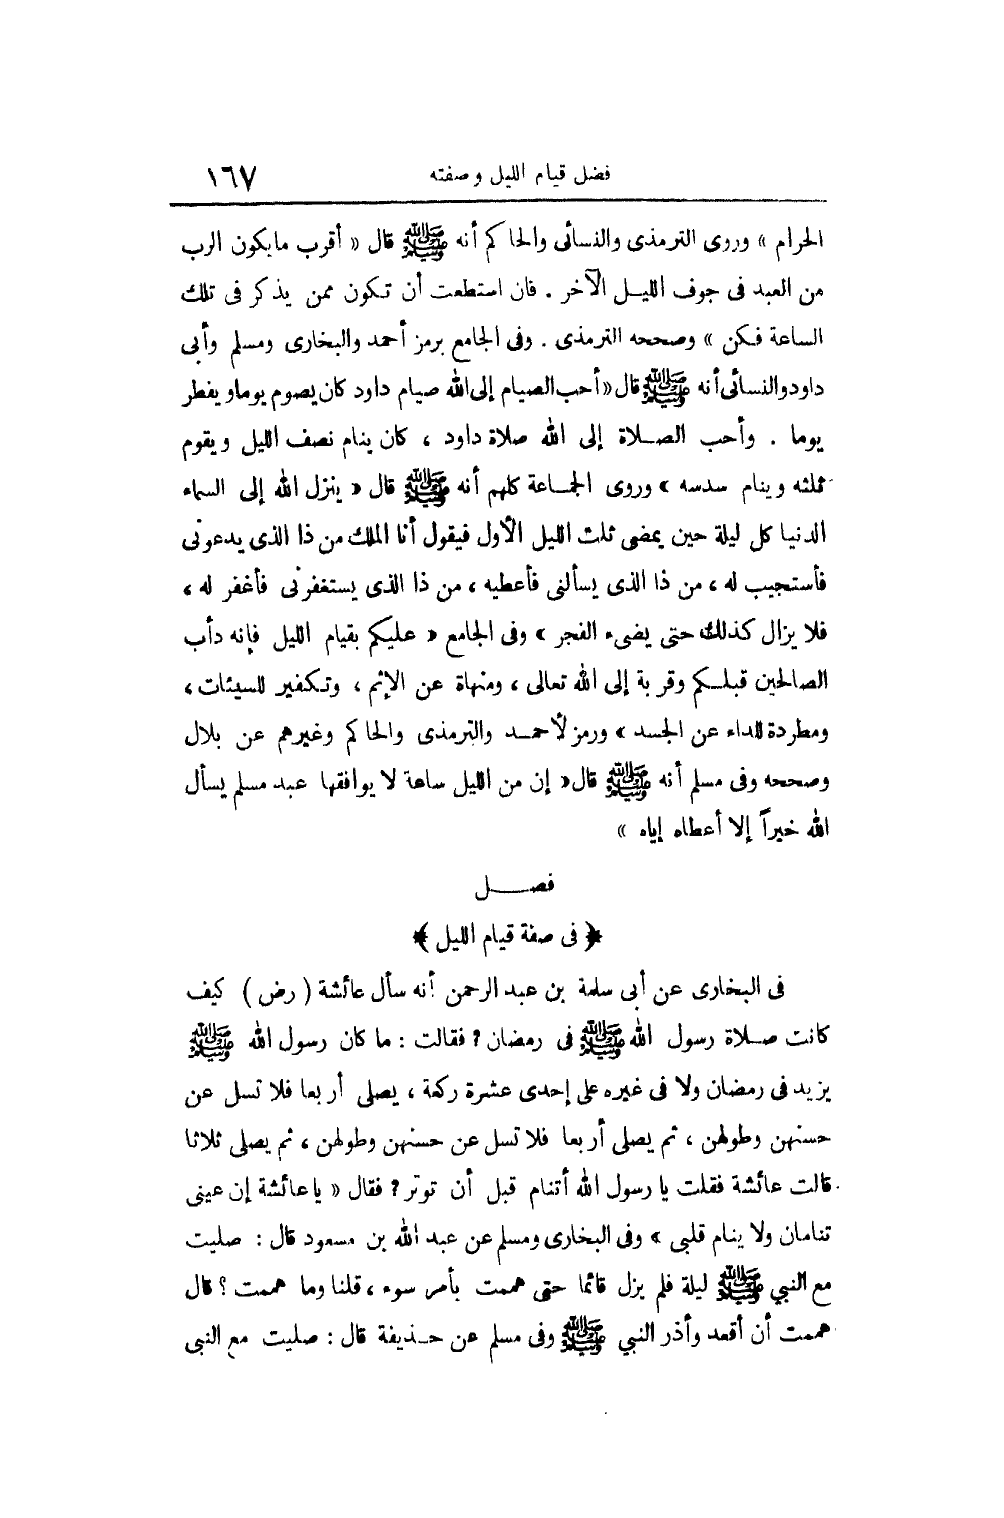 فضل قيام الليل وصفته ١٦٧
الحرام » وروى الترمذى والنسائى والحاكم أنه ﷺ قال « أقرب مايكون الرب
من العبد فى جوف الليل الآخر . فان استطعت أن تكون ممن يذكر فى تلك
الساعة فكن » وصححه الترمذى . وفى الجامع برمز أحمد والبخارى ومسلم وأبى
داود والنسائى أنه ﷺ قال « أحب الصيام إلى الله صيام داود كان يصوم يوما ويفطر
يوما . وأحب الصلاة إلى الله صلاة داود ، كان ينام نصف الليل ويقوم
ثلثه وينام سدسه » وروى الجماعة كلهم أنه ﷺ قال « ينزل الله إلى السماء
الدنيا كل ليلة حين يمضى ثلث الليل الأول فيقول أنا الملك من ذا الذى يدعونى
فأستجيب له ، من ذا الذى يسألنى فأعطيه ، من ذا الذى يستغفرنى فأغفر له ،
فلا يزال كذلك حتى يضىء الفجر » وفى الجامع « عليكم بقيام الليل فإنه دأب
الصالحين قبلكم وقربة إلى الله تعالى ، ومنهاة عن الإثم ، وتكفير للسيئات ،
ومطردة للداء عن الجسد » ورمز لأحمد والترمذى والحاكم وغيرهم عن بلال
وصححه وفى مسلم أنه ﷺ قال « إن من الليل ساعة لا يوافقها عبد مسلم يسأل
الله خيراً إلا أعطاه إياه »
فصل
﴿ فى صفة قيام الليل ﴾
فى البخارى عن أبى سلمة بن عبد الرحمن أنه سأل عائشة ( رض ) كيف
كانت صلاة رسول الله ﷺ فى رمضان ؟ فقالت : ما كان رسول الله ﷺ
يزيد فى رمضان ولا فى غيره على إحدى عشرة ركعة ، يصلى أربعا فلا تسل عن
حسنهن وطولهن ، ثم يصلى أربعا فلا تسل عن حسنهن وطولهن ، ثم يصلى ثلاثا
قالت عائشة فقلت يا رسول الله أتنام قبل أن توتر ؟ فقال « يا عائشة إن عينى
تنامان ولا ينام قلبى » وفى البخارى ومسلم عن عبد الله بن مسعود قال : صليت
مع النبي ﷺ ليلة فلم يزل قائما حتى هممت بأمر سوء ، قلنا وما هممت ؟ قال
هممت أن أقعد وأذر النبي ﷺ وفى مسلم عن حذيفة قال : صليت مع النبى